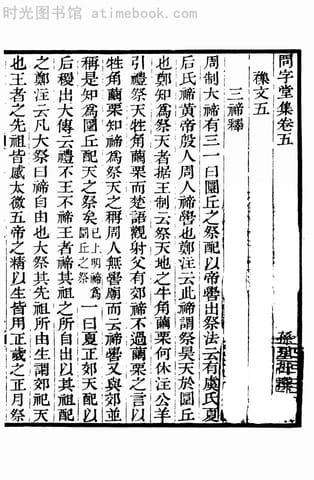 时光图书馆 atimebook.com
問字堂集卷五
襍文五
孫星衍譔
三禘釋
周制大禘有三一曰圜丘之祭配以帝嚳出祭法云有虞氏夏
后氏禘黃帝殷人周人禘嚳也鄭注云此禘謂祭昊天於圜丘
也鄭知爲祭天者據王制云祭天地之牛角繭栗何休注公羊
引禮祭天牲角繭栗而楚語觀射父有郊禘不過繭栗之言以
牲角繭栗知禘爲祭天之稱周人無嚳廟而云禘嚳又與郊並
稱是知爲圜丘配天之祭矣已上明禘爲圜丘之祭一曰夏正郊天配以
后稷出大傳云禮不王不禘王者禘其祖之所自出以其祖配
之鄭注云凡大祭曰禘自由也大祭其先祖所由生謂郊祀天
也王者之先祖皆感太微五帝之精以生皆用正歲之正月祭